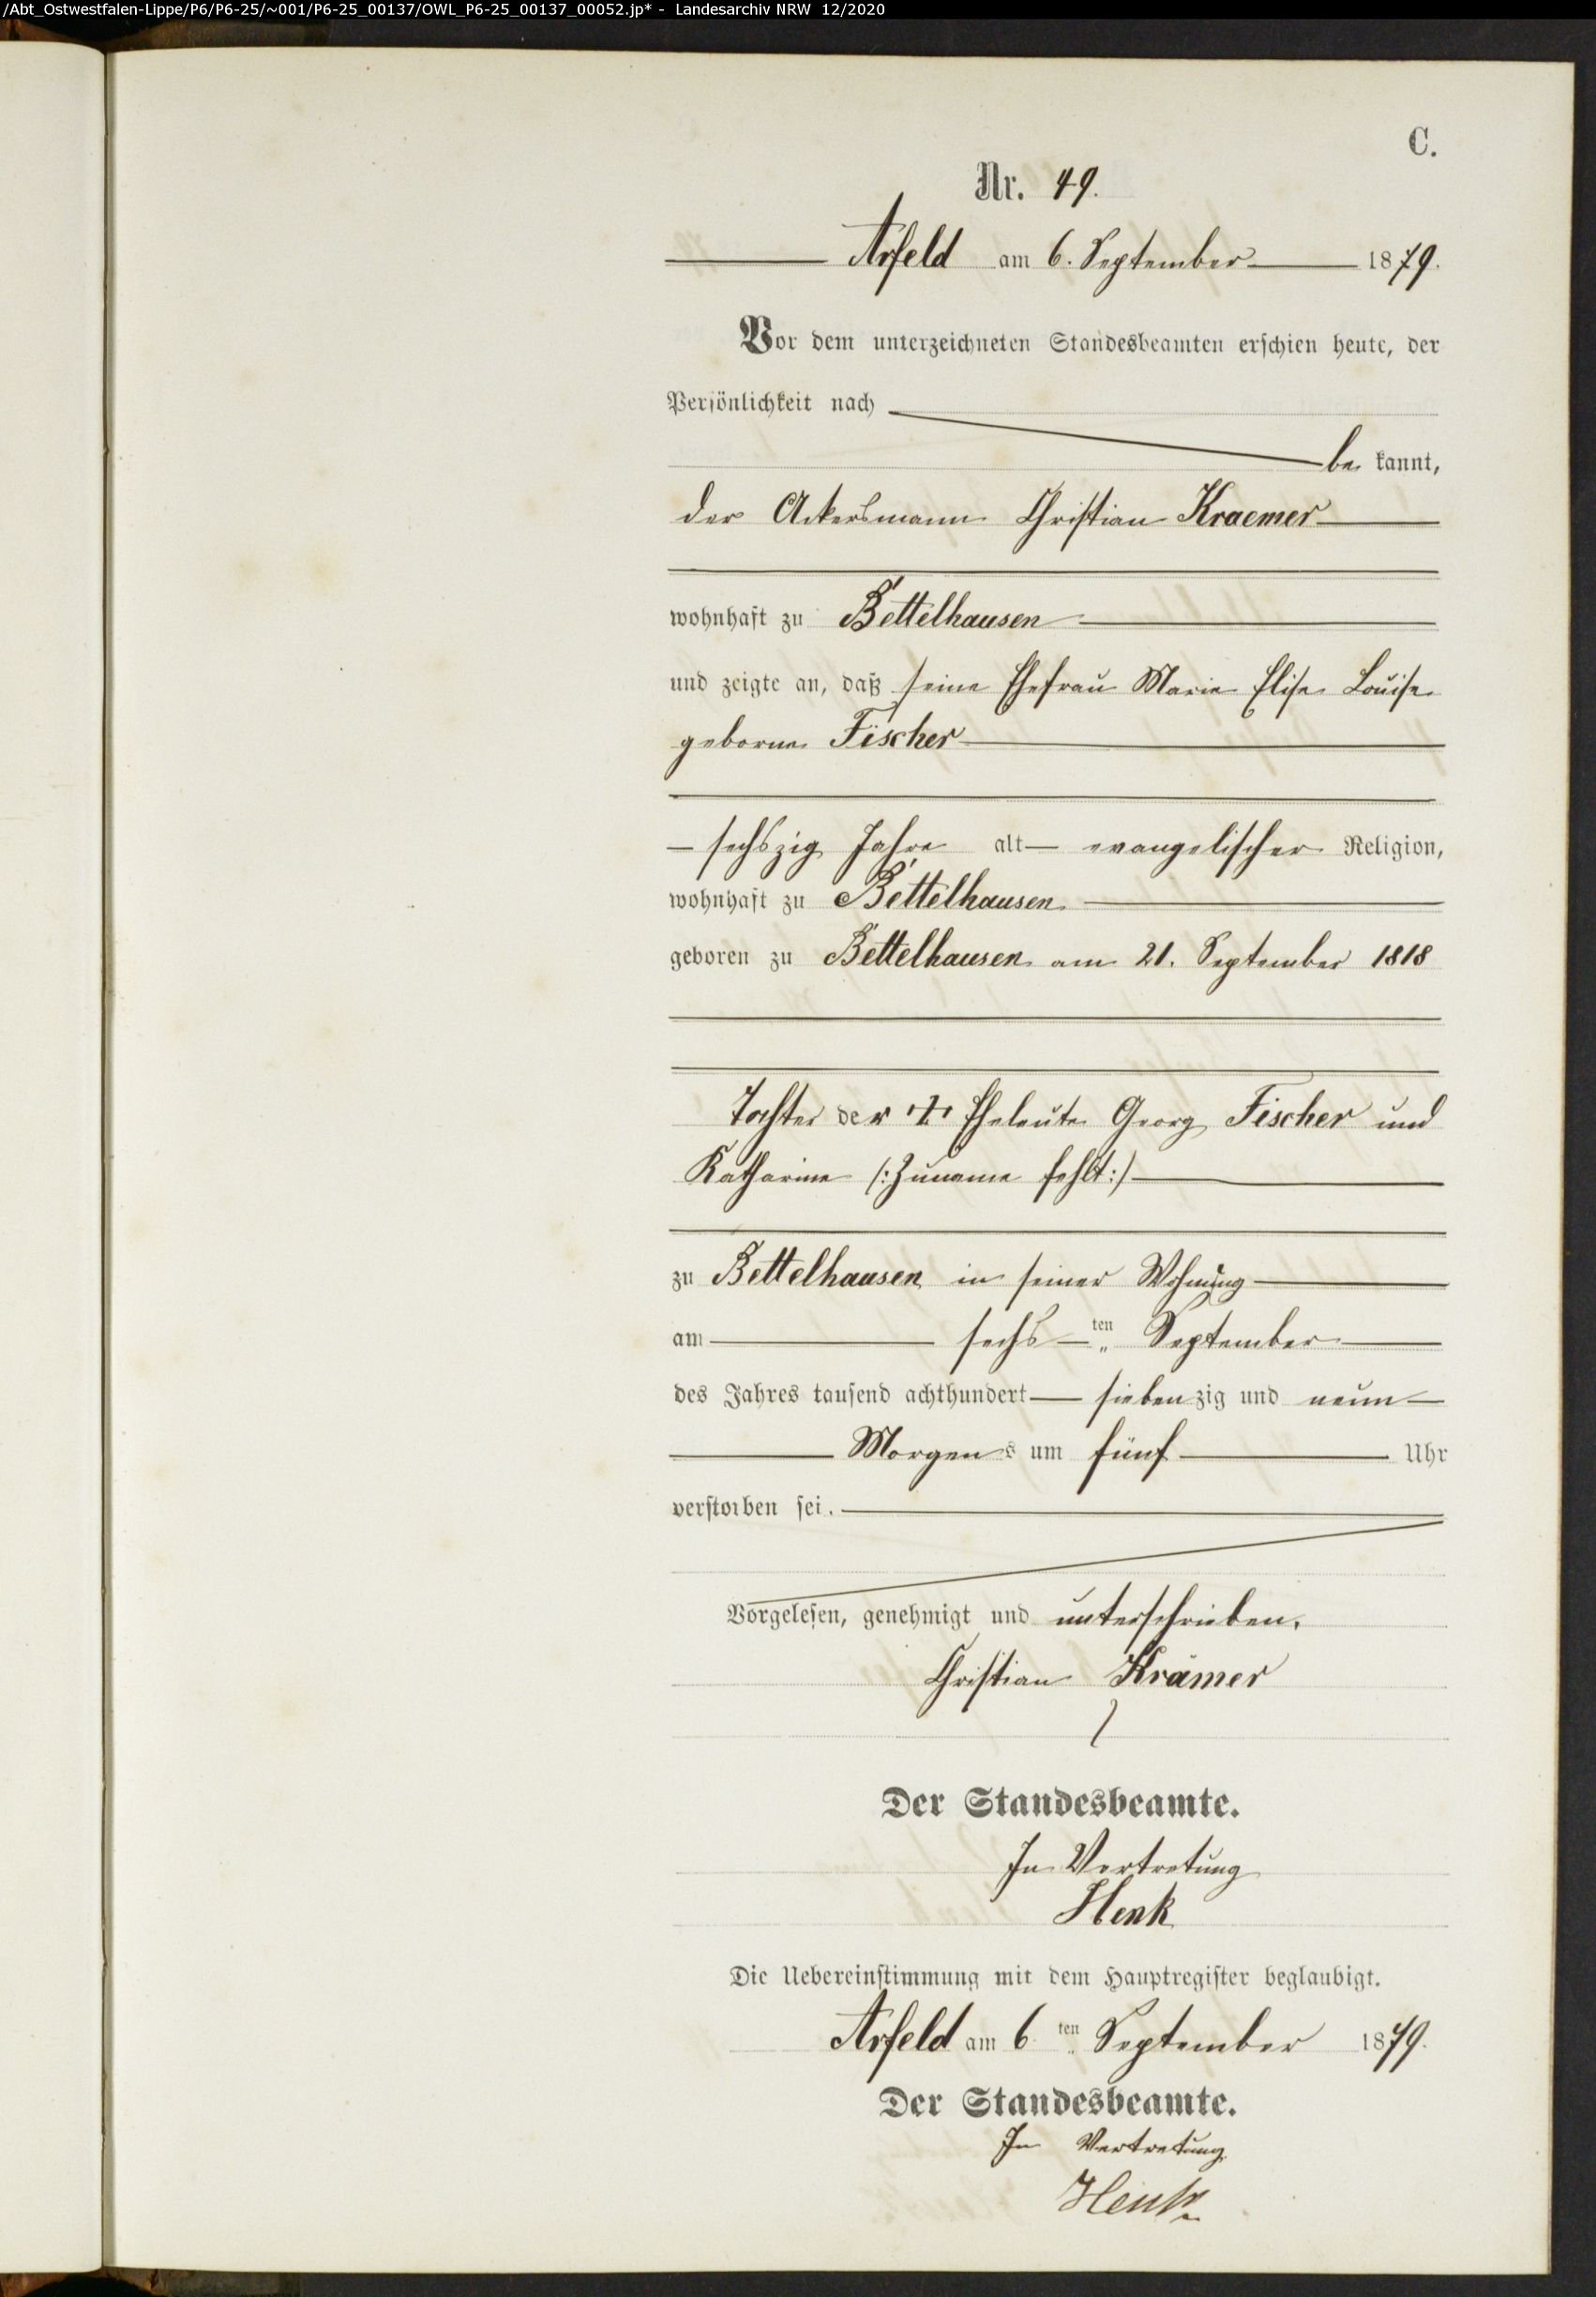 /Abt_Ostwestfalen-Lippe/P6/P6-25/~001/P6-25_00137/OWL_P6-25_00137_00052.jp* - Landesarchiv NRW 12/2020
C.
Nr. 49.
Arfeld am 6. September 1879.
Vor dem unterzeichneten Standesbeamten erschien heute, der
Persönlichkeit nach
be kannt,
der Ackersmann Christian Kraemer
wohnhaft zu Bettelhausen
und zeigte an, daß seine Ehefrau Marie Elise Louise
geborne Fischer
sechszig Jahre alt evangelischer Religion,
wohnhaft zu Bettelhausen
geboren zu Bettelhausen am 21. September 1818
Tochter der + Eheleute Georg Fischer und
Katharine (:Zuname fehlt:)
zu Bettelhausen in seiner Wohnung
am sechs ten September
des Jahres tausend achthundert siebenzig und neun
Morgens um fünf Uhr
verstorben sei.
Vorgelesen, genehmigt und unterschrieben.
Christian Krämer
Der Standesbeamte.
In Vertretung
Henk
Die Uebereinstimmung mit dem Hauptregister beglaubigt.
Arfeld am 6 ten September 1879.
Der Standesbeamte.
In Vertretung
Henk